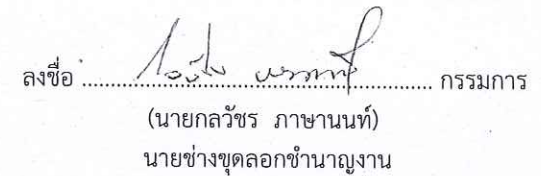 ลงชื่อ ................................................ กรรมการ
(นายกลวัชร ภาษานนท์)
นายช่างขุดลอกชำนาญงาน